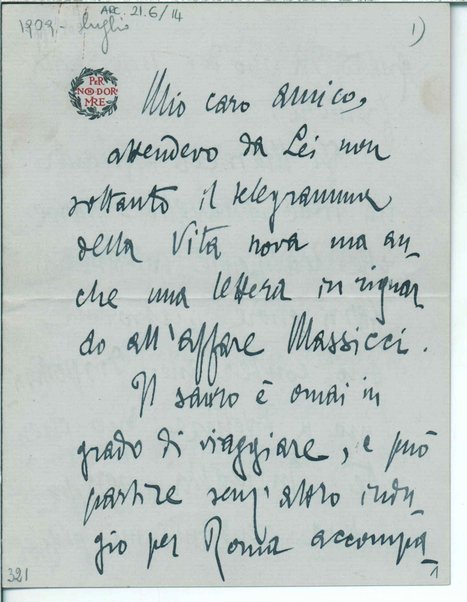 ARC. 21.6/14
1909 - luglio
1)
PER
NON DOR
MIRE
Mio caro amico,
attendevo da Lei non
soltanto il telegramma
della Vita nova ma an
che una lettera in riguar
do all'affare Massicci.
Il sauro è omai in
grado di viaggiare, e può
partire senz'altro indu
gio per Roma accompa
321
1